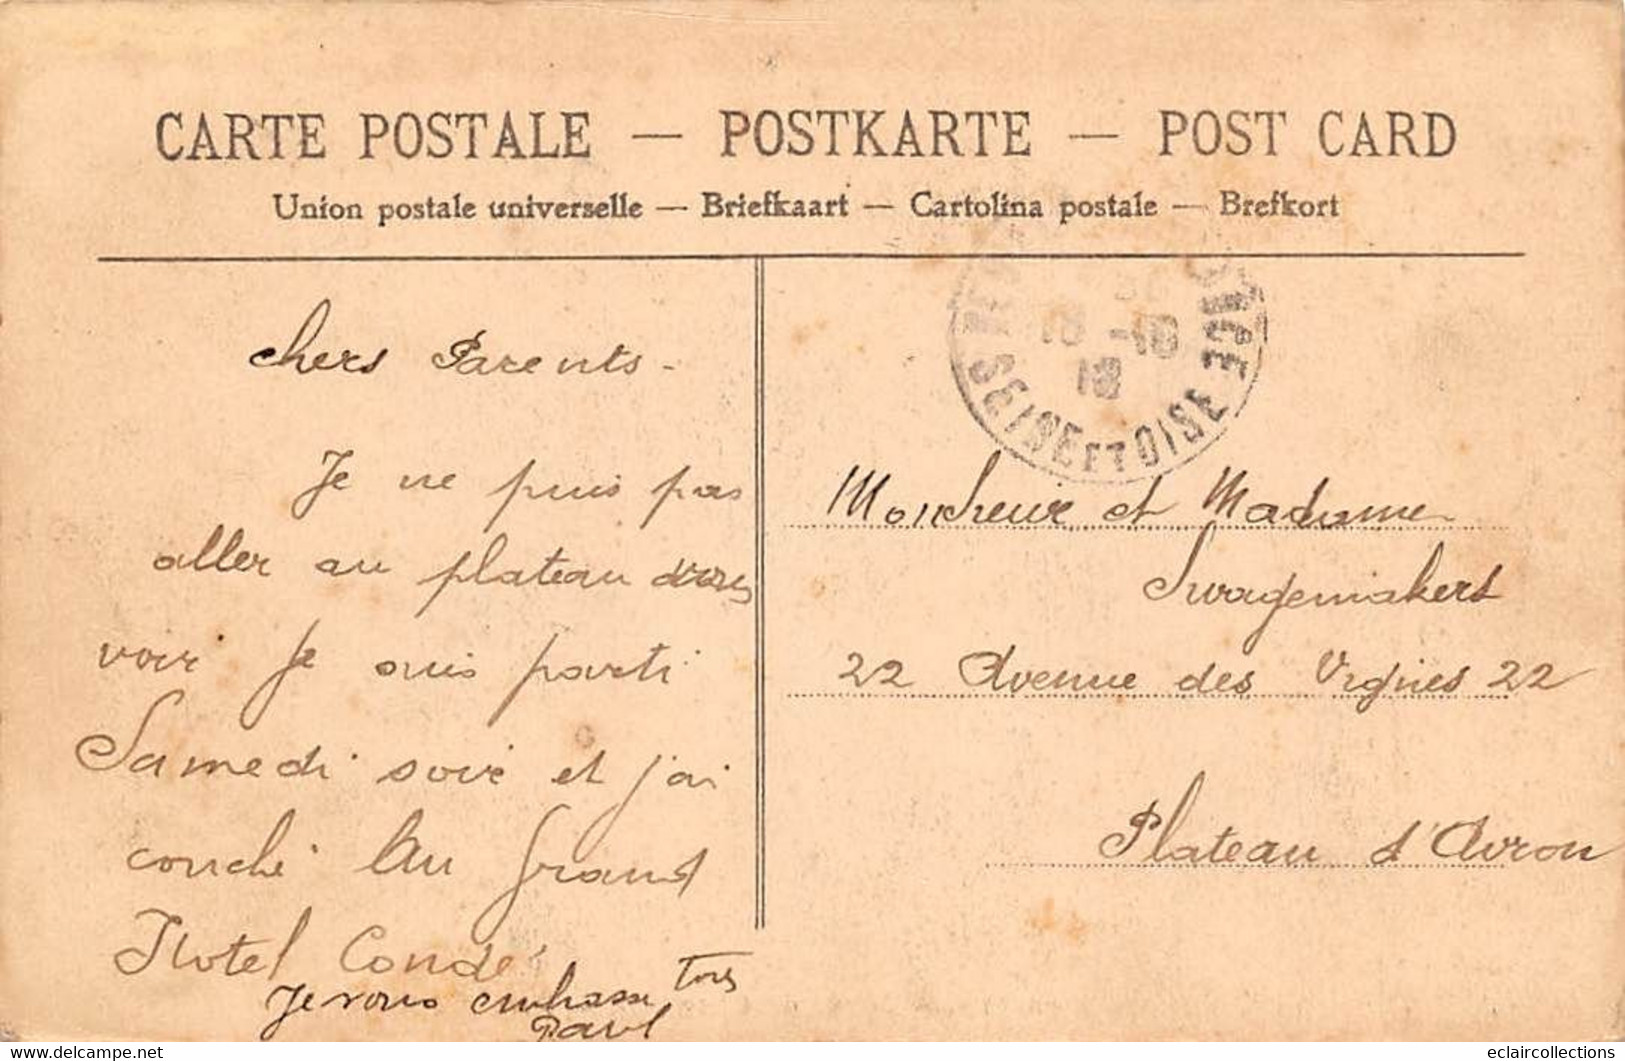 CARTE POSTALE — POSTKARTE — POST CARD
Union postale universelle — Briefkaart — Cartolina postale — Brefkort
chers Parents -
Je ne puis pas
aller au plateau vous
voir Je suis parti
Samedi soir et j'ai
couché Au Grand
Hotel Condé
Je vous embrasse Tous
Paul
SEINE ET OISE
Moncheur et Madame
Swagemakers
22 Avenue des Vignes 22
Plateau d'Avron
delcampe.net
eclaircollections